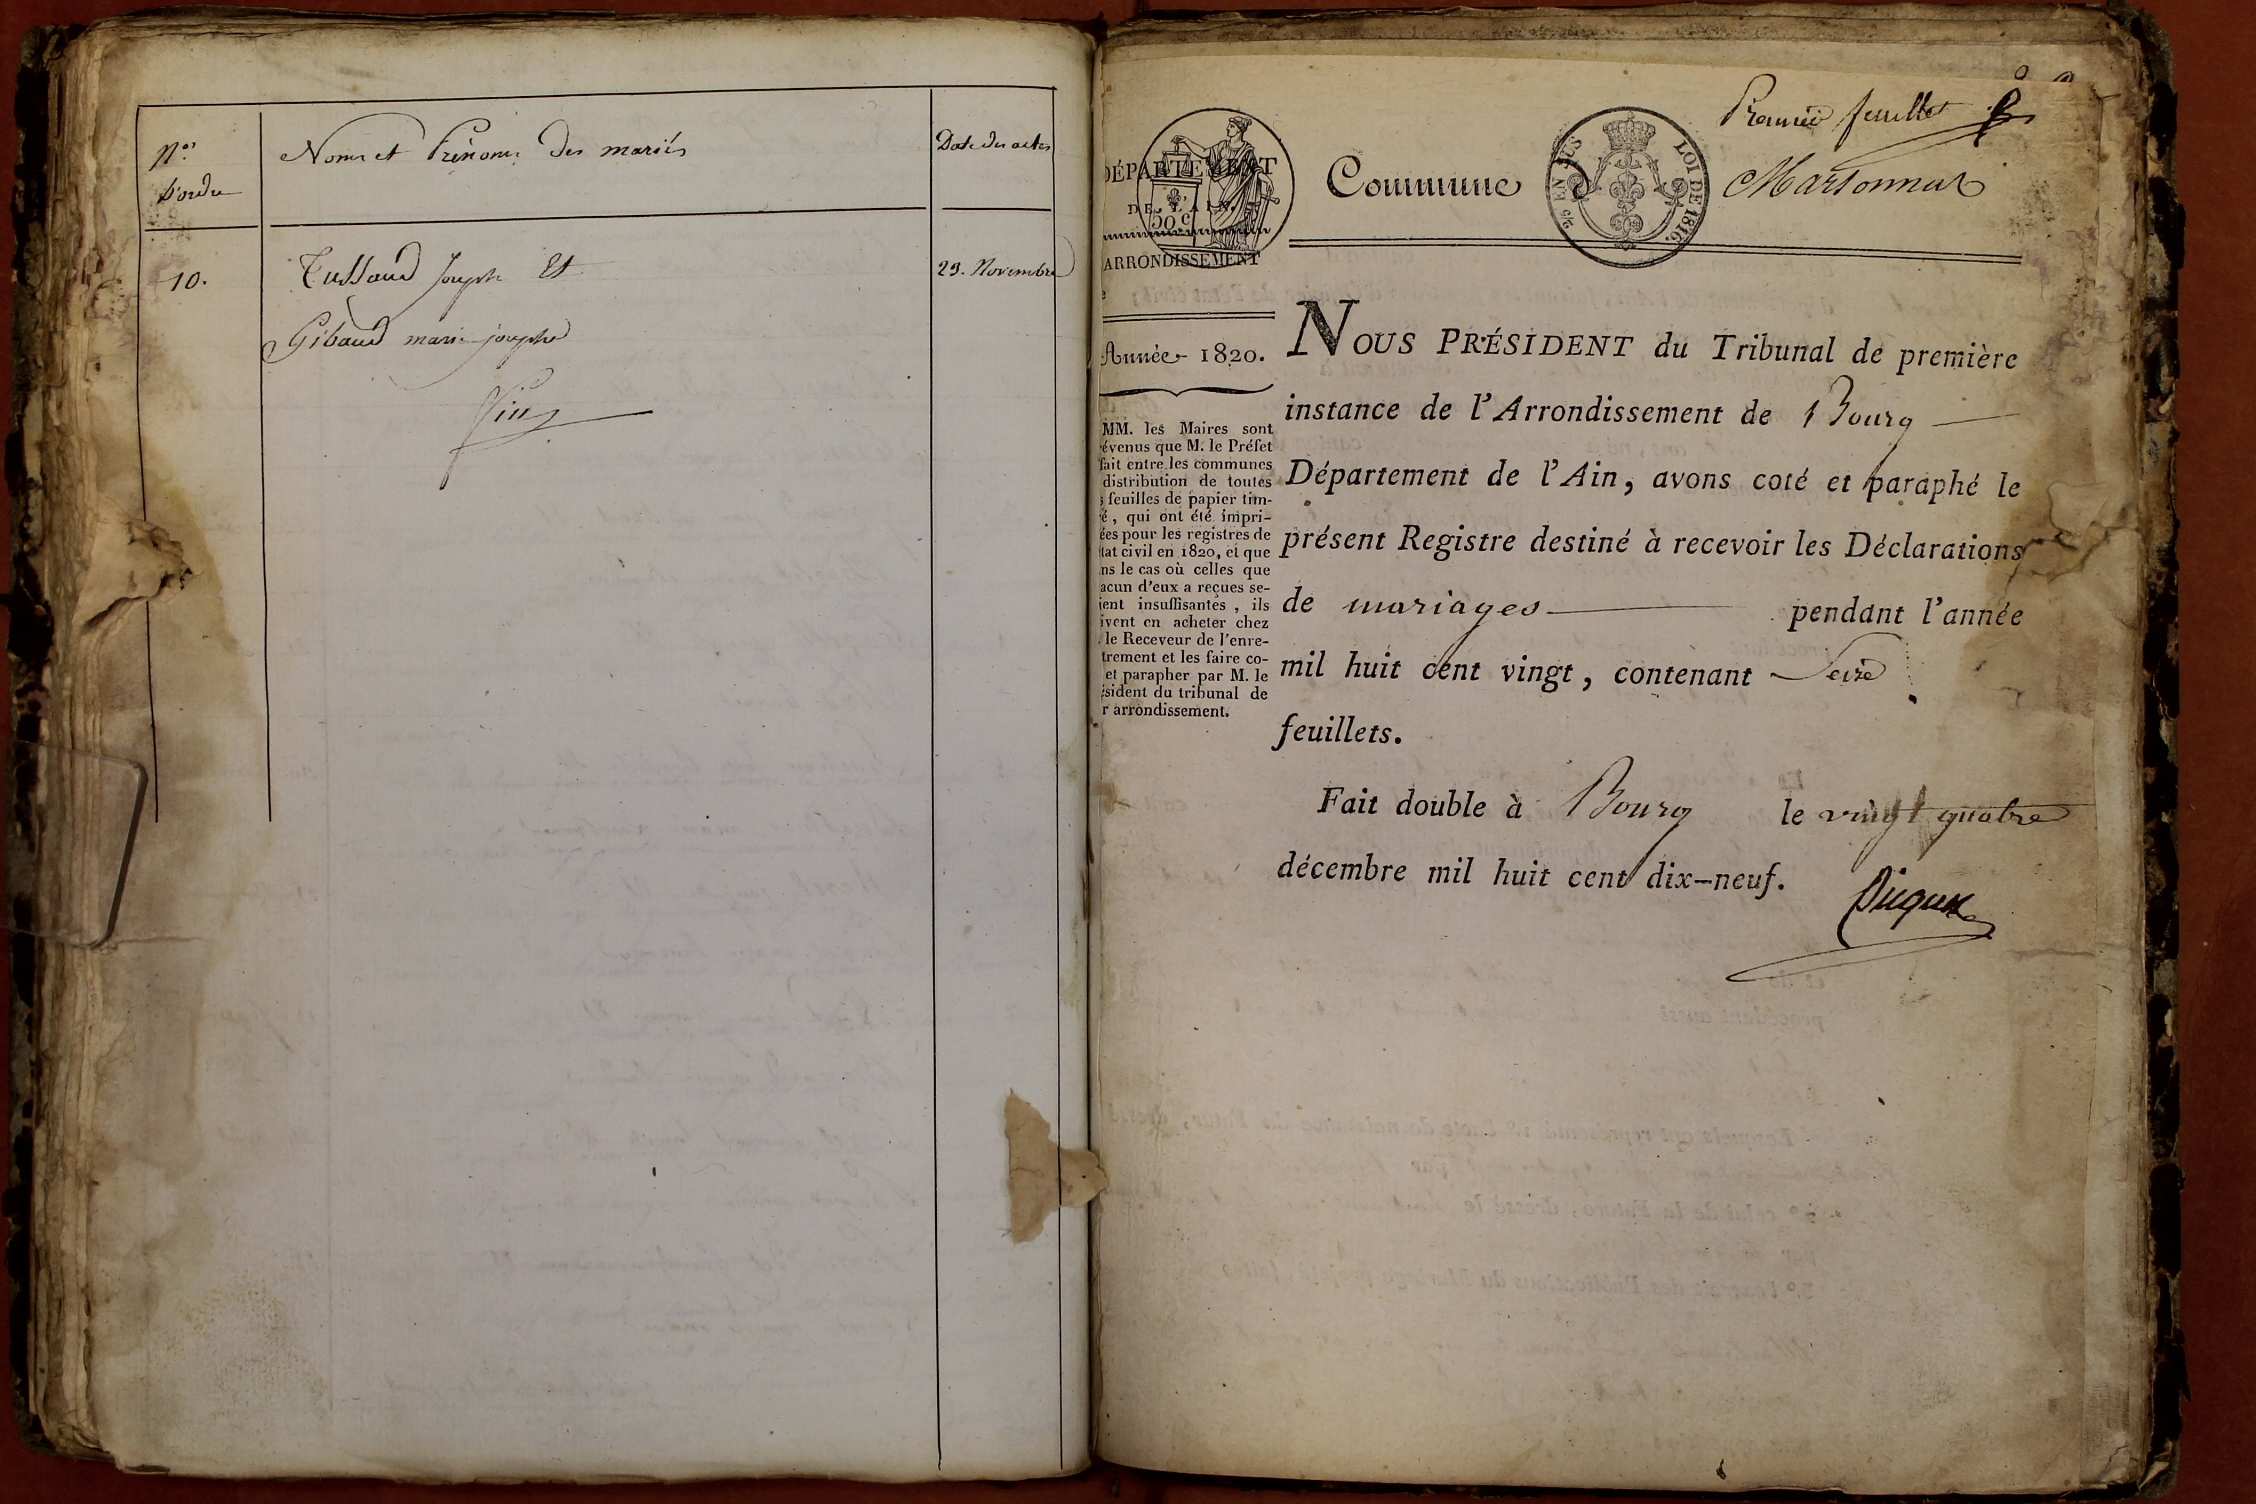 N.os
d'ordre
Noms et Prénoms des mariés
Date des actes
10.
Tussaud Joseph Et
29. Novembre
Gibaud marie josephe
Premier feuillet
DÉPARTEMENT
DE L'AIN.
50 c
ARRONDISSEMENT
Commune
EN SUS
LOI DE 1816.
Marsonnas
Année 1820.
MM. les Maires sont
évenus que M. le Préfet
fait entre les communes
distribution de toutes
s feuilles de papier tim-
é, qui ont été impri-
ées pour les registres de
tat civil en 1820, et que
ns le cas où celles que
acun d'eux a reçues se-
ient insuffisantes, ils
ivent en acheter chez
. le Receveur de l'enre-
trement et les faire co-
et parapher par M. le
ésident du tribunal de
r arrondissement.
NOUS PRÉSIDENT du Tribunal de première
instance de l'Arrondissement de Bourg
Département de l'Ain, avons coté et paraphé le
présent Registre destiné à recevoir les Déclarations
de mariages pendant l'année
mil huit cent vingt, contenant Seize
feuillets.
Fait double à Bourg le vingt quatre
décembre mil huit cent dix-neuf.